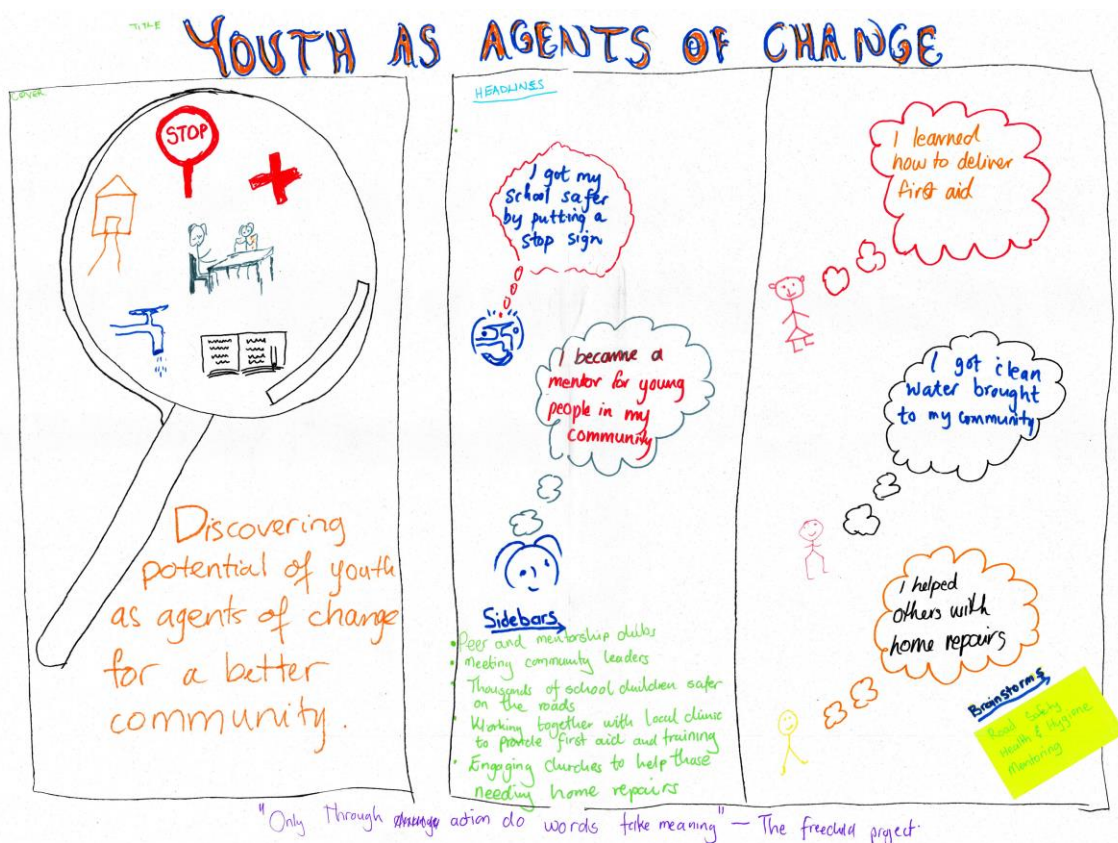 TITLE
YOUTH AS AGENTS OF CHANGE
COVER
STOP
Discovering
potential of youth
as agents of change
for a better
community.
HEADLINES
I got my
school safer
by putting a
stop sign
I became a
mentor for young
people in my
community
Sidebars
• Peer and mentorship clubs
• Meeting community leaders
• Thousands of school children safer
on the roads
• Working together with local clinic
to provide first aid and training
• Engaging churches to help those
needing home repairs
I learned
how to deliver
first aid
I got clean
water brought
to my community
I helped
others with
home repairs
Brainstorms
Road Safety
Health & Hygiene
Mentoring
"Only Through action do words take meaning" — The freechild project.